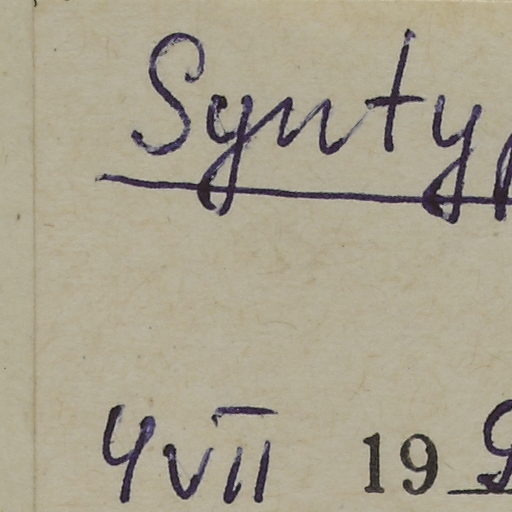 Synty
4 VII 19